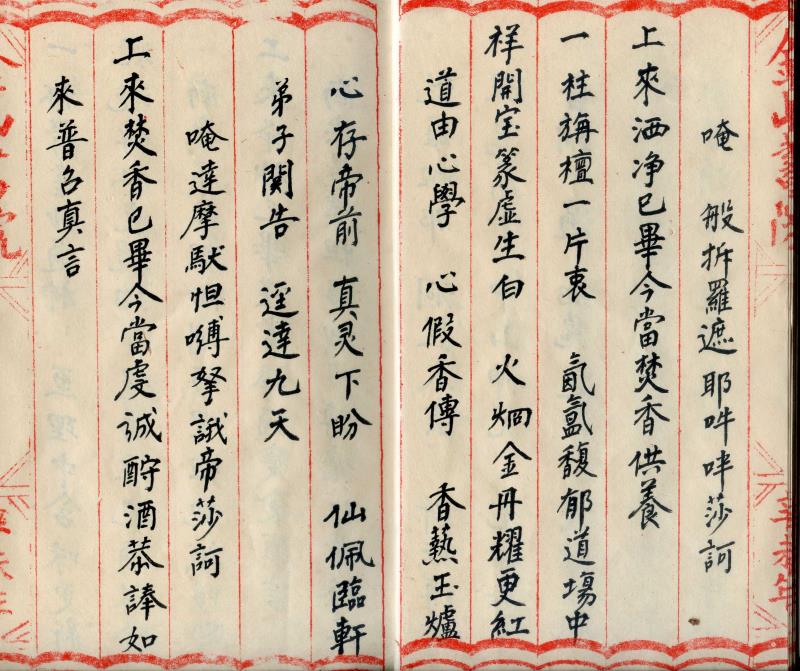 唵　般折羅遮耶吽吽莎訶
上來洒净已畢今當焚香供養
一柱旃檀一片衷　氤氲馥郁道場中
祥開宝篆虚生白　火烟金丹耀更紅
道由心學　心假香傳　香爇玉爐
心存帝前　真灵下盼　仙佩臨軒
弟子関告　逕達九天
唵達摩馱怛嚩拏誐帝莎訶
上來焚香已畢今當虔誠酧酒恭諱如
來普召真言